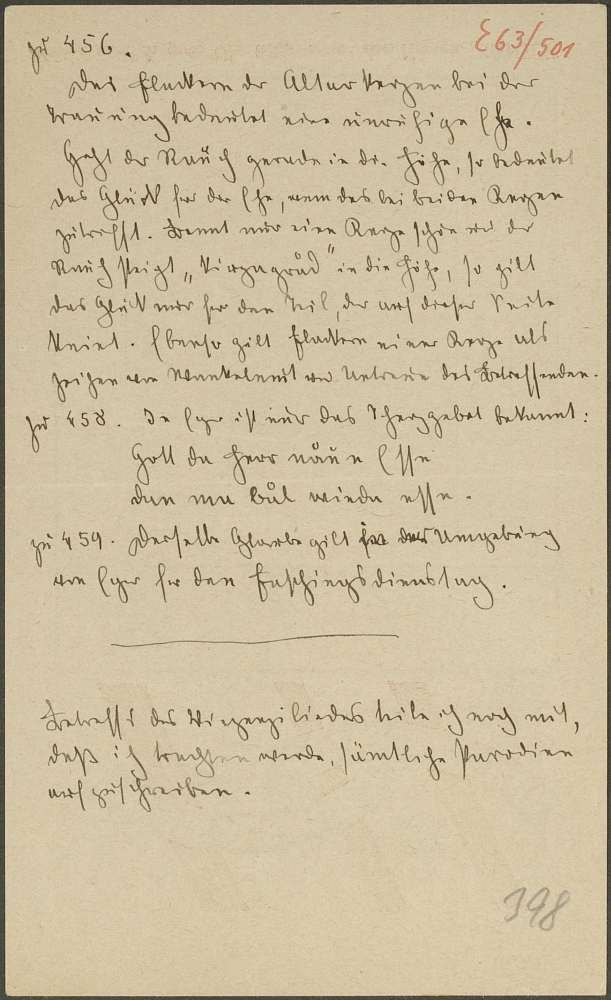 zu 456.
E63/501
Das Flackern der Altarkerzen bei der
Trauung bedeutet eine unruhige Ehe.
Geht der Rauch gerade in die Höhe, so bedeutet
das Glück für die Ehe, wenn das bei beiden Kerzen
zutrifft. Brennt nur eine Kerze schön und der
Rauch steigt „kirzngrod“ in die Höhe, so gilt
das Glück nur für den Teil, der auf dieser Seite
kniet. Ebenso gilt Flackern einer Kerze als
Zeichen von Wankelmut und Untreue des Betreffenden.
zu 458. In Eger ist nur das Scherzgebet bekannt:
Gott da Herr näun Esse
dan ma bål wieda esse.
zu 459. Derselbe Glaube gilt Umgebung
von Eger für den Faschingsdienstag.
Betreffs des Vinzenziliedes teile ich noch mit,
daß ich trachten werde, sämtliche Parodien
aufzuschreiben.
398